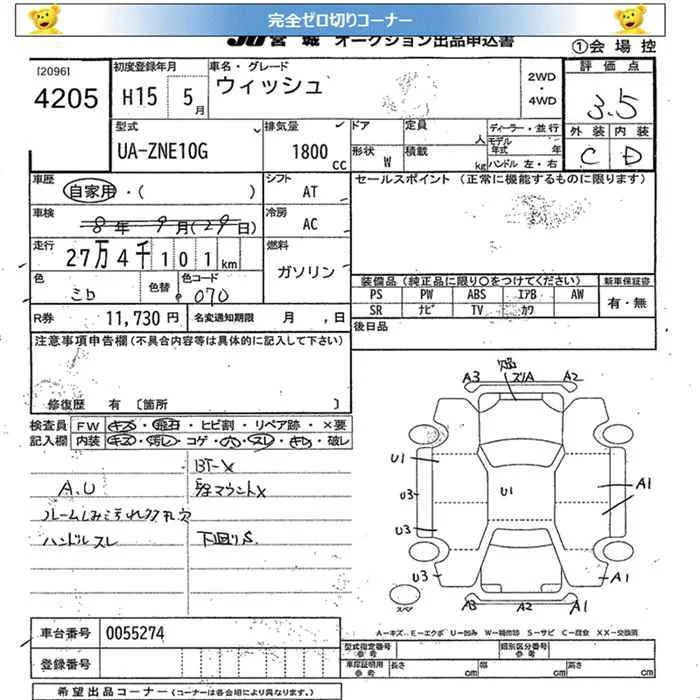 完全ゼロ切りコーナー
JU宮城 オークション出品申込書
①会場控
[2096]
4205
初度登録年月
H15 5月
車名・グレード
ウィッシュ
2WD
・
4WD
評価点
3.5
型式
UA-ZNE10G
排気量
1800 cc
ドア
形状 W
定員 人
積載 kg
ディーラー・並行
モデル年式 年
ハンドル 左・右
外装 内装
C D
車歴
自家用・( )
シフト
AT
セールスポイント (正常に機能するものに限ります)
車検
8年9月(29日)
冷房
AC
走行
27万4千101km
燃料
ガソリン
色
色替
色コード
070
装備品 (純正品に限り○をつけてください)
新車保証書
PS PW ABS エアB AW
SR ナビ TV カワ
有・無
R券 11,730円
名変通知期限 月 日
後日品
注意事項申告欄(不具合内容等は具体的に記入して下さい)
修復歴 有 [箇所 ]
検査員記入欄
FW キズ・飛石・ヒビ割・リペア跡・×要
内装 キズ・汚レ・コゲ・穴・スレ・キレ・破レ
BT-X
A.U
ルームシミ汚れ
ハンドルスレ
下回りS.
A3 ズリA A2
U1
U3 U1 A1
U3
U3 A1
スペア
A3 A2 A1
A-キズ E-エクボ U-凹み W-補修跡 S-サビ C-腐食 XX-交換済
車台番号 0055274
登録番号
型式指定番号
参考
類別区分番号
参考
車庫証明用
参考
長さ cm
幅 cm
高さ cm
希望出品コーナー (コーナーは各会場により異なります。)